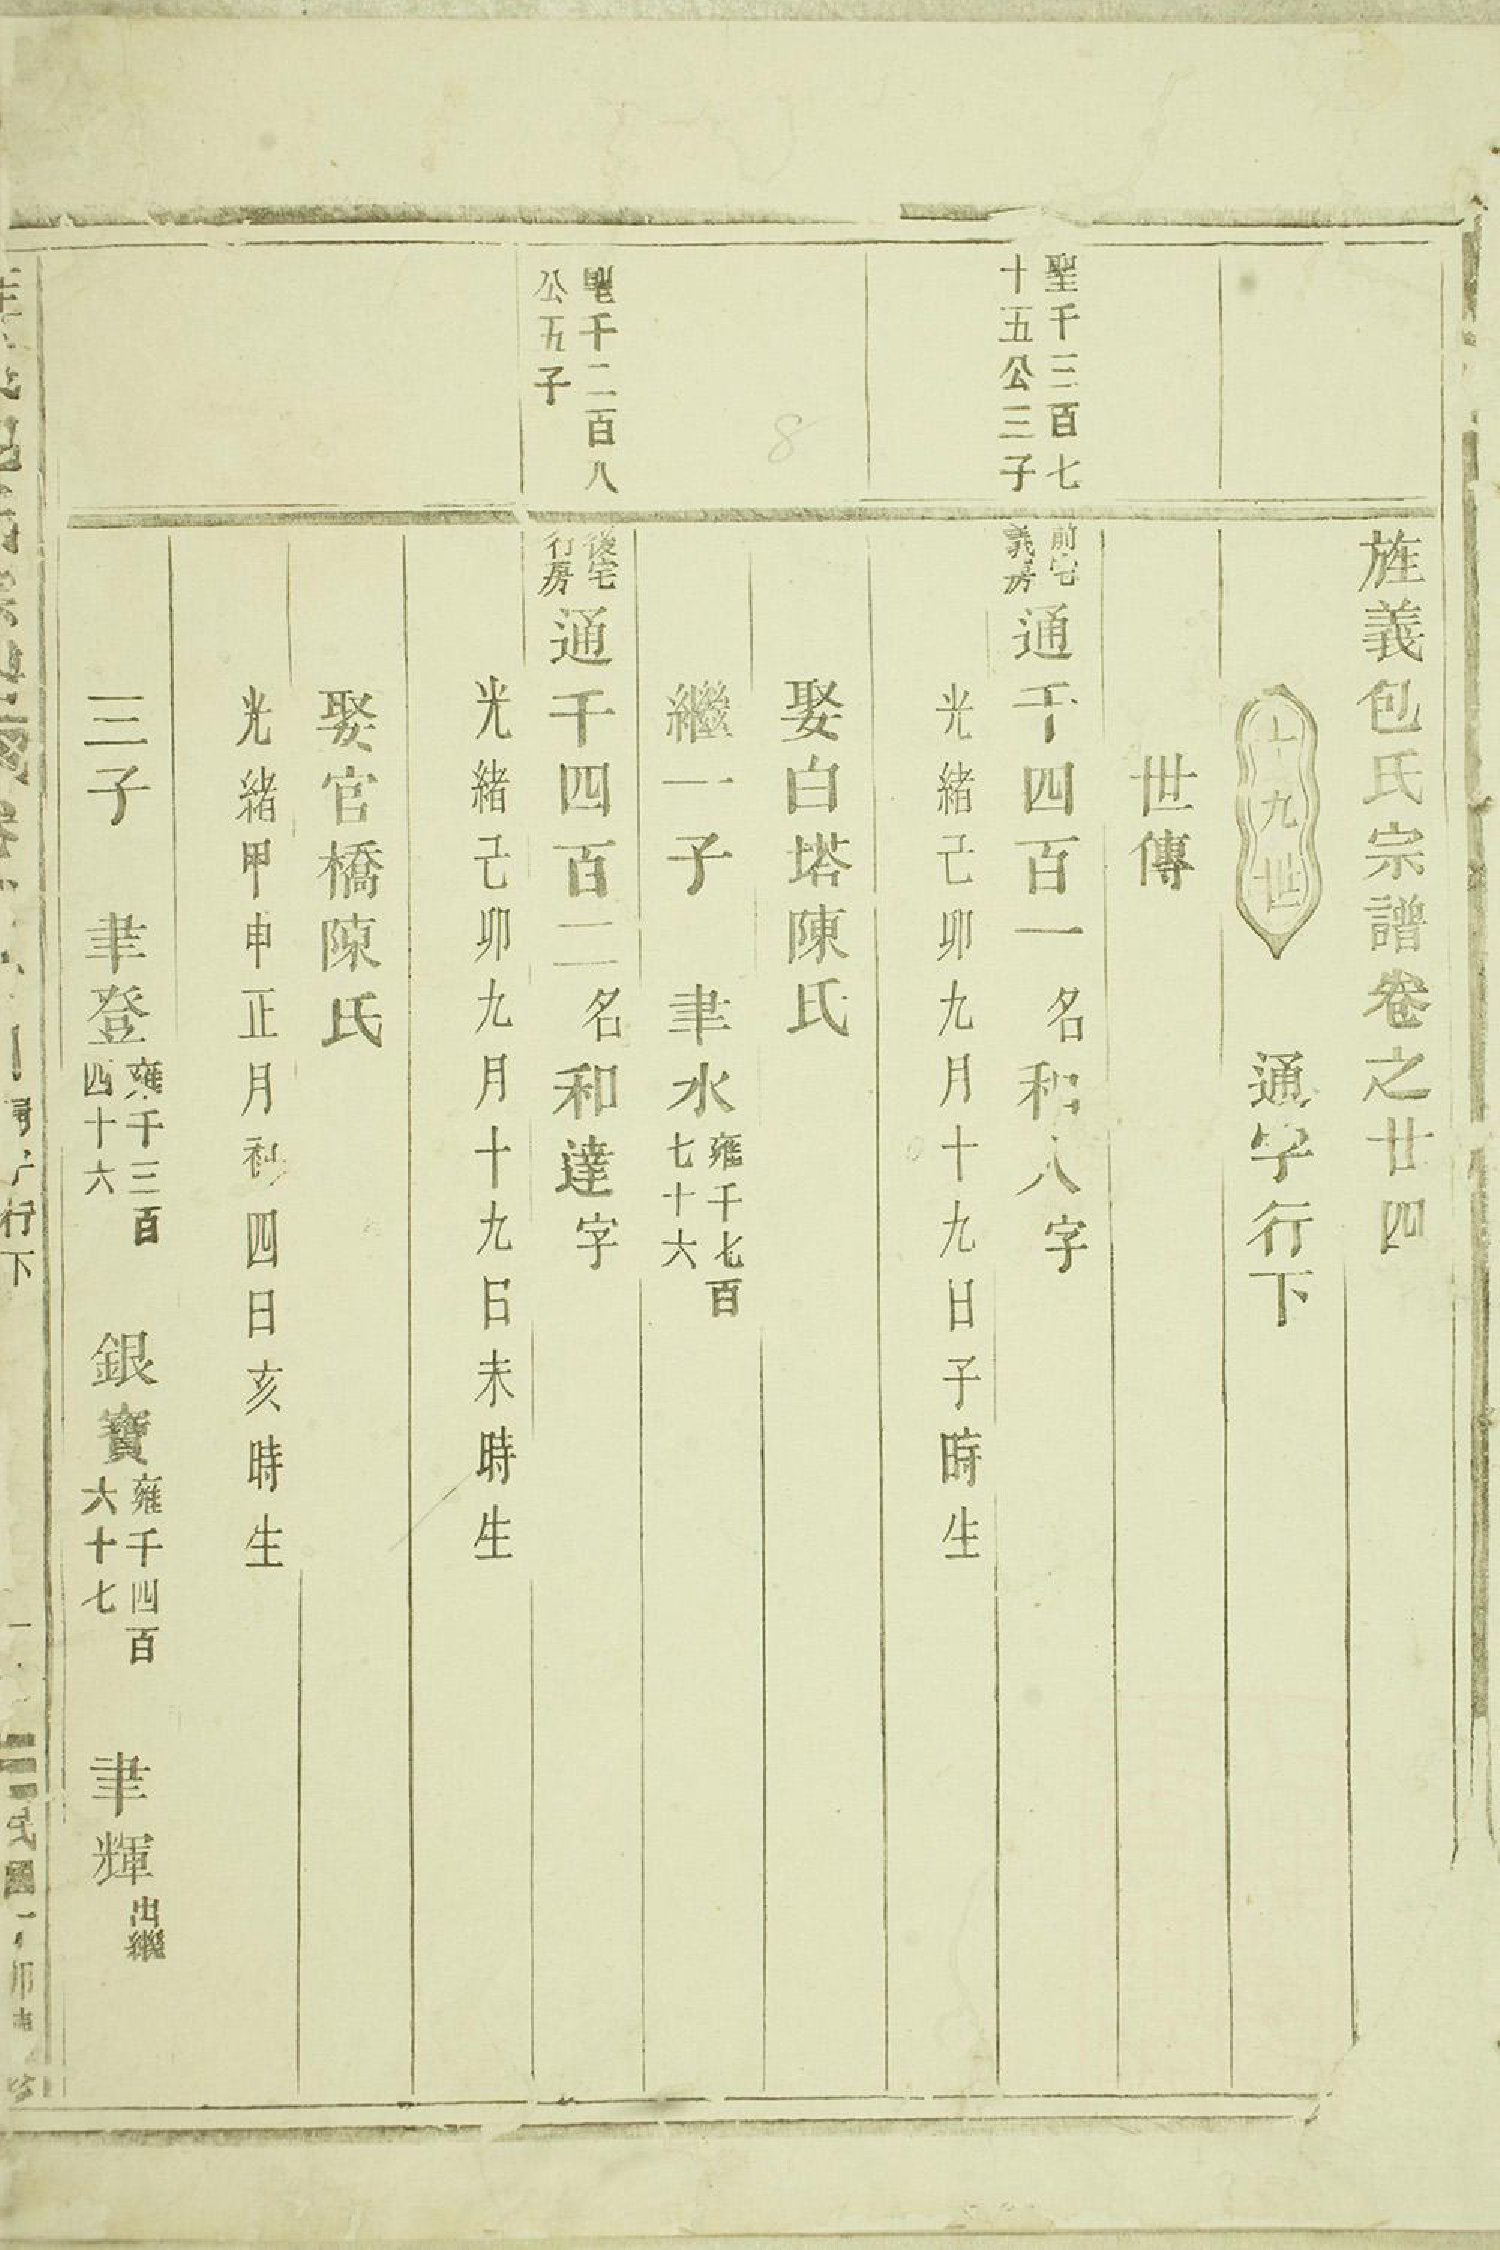 旌義包氏宗譜卷之廿四
十九世 通字行下
世傳
聖千三百七
十五公三子
前宅
義房
通千四百一名和人字
光緒己卯九月十九日子時生
娶白塔陳氏
繼一子 聿水 雍千七百
七十六
聖千二百八
公五子
後宅
行房
通千四百二名和達字
光緒己卯九月十九日未時生
娶官橋陳氏
光緒甲申正月初四日亥時生
三子 聿登 雍千三百
四十六
銀寶 雍千四百
六十七
聿輝 出繼
行下
民國